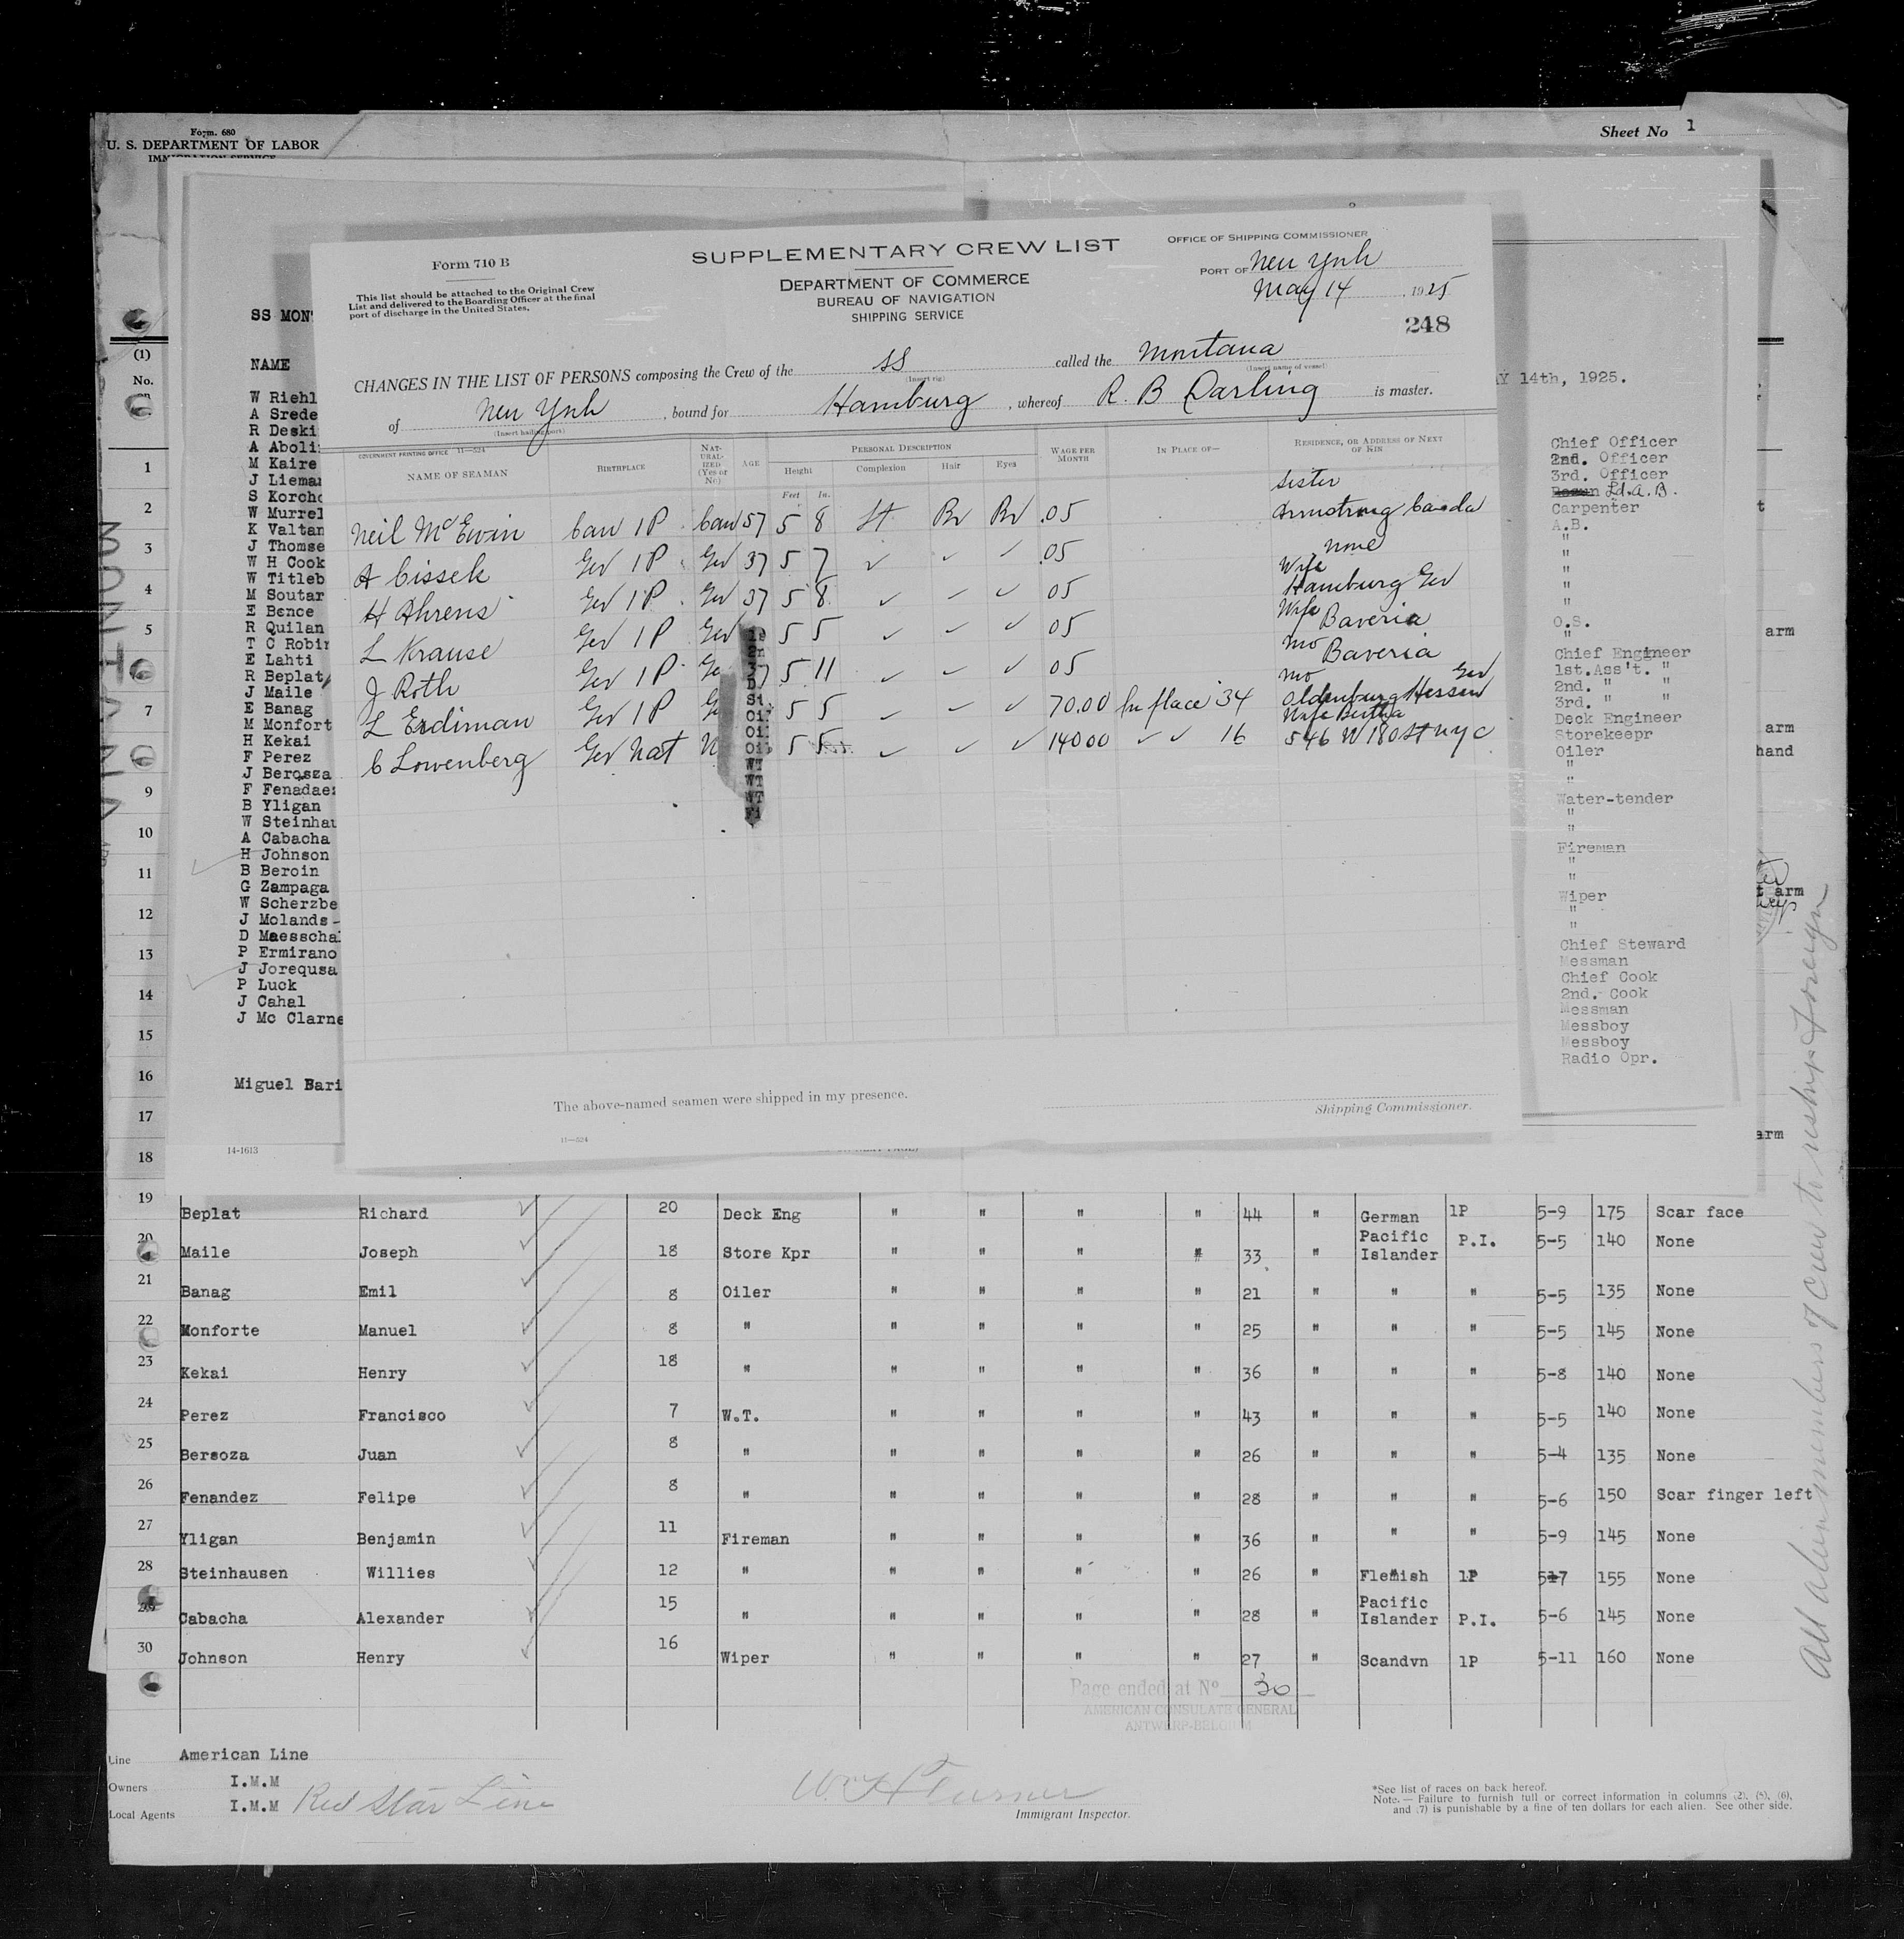 Form. 680
U. S. DEPARTMENT OF LABOR
IMMIGRATION SERVICE
Sheet No 1
Form 710 B
This list should be attached to the Original Crew
List and delivered to the Boarding Officer at the final
port of discharge in the United States.
SUPPLEMENTARY CREW LIST
DEPARTMENT OF COMMERCE
BUREAU OF NAVIGATION
SHIPPING SERVICE
OFFICE OF SHIPPING COMMISSIONER
PORT OF New York
May 14, 1925
248
CHANGES IN THE LIST OF PERSONS composing the Crew of the SS called the Montana
(Insert rig) (Insert name of vessel)
of New York, bound for Hamburg, whereof R. B Darling is master.
(Insert hailing port)
GOVERNMENT PRINTING OFFICE 11—524
NAME OF SEAMAN BIRTHPLACE NAT-URAL-IZED (Yes or No) AGE PERSONAL DESCRIPTION Height Feet In. Complexion Hair Eyes WAGE PER MONTH IN PLACE OF— RESIDENCE, OR ADDRESS OF NEXT OF KIN
Sister
Neil McEwin Can 1P Can 57 5 8 Lt Br Br .05 Armstrong Canada
A Cissek Ger 1P Ger 37 5 7 ✓ ✓ ✓ .05 none
Wife
H Ahrens Ger 1P Ger 37 5 8 ✓ ✓ ✓ 05 Hamburg Ger
Wife
L Krause Ger 1P Ger 5 5 ✓ ✓ ✓ 05 Baveria
Mo
J Roth Ger 1P Ge 37 5 11 ✓ ✓ ✓ 05 Baveria
Mo Ger
L Erdiman Ger 1P 5 5 ✓ ✓ ✓ 70.00 In place 34 Oldenburg Hessen
Wife Bertha
C Lowenberg Ger Nat N 5 5 ✓ ✓ ✓ 140 00 ✓ ✓ 16 546 W 180 St NYC
The above-named seamen were shipped in my presence.
Shipping Commissioner.
11—524
SS MON
NAME
AY 14th, 1925.
W Riehl
A Srede
R Deski
A Aboli
M Kaire
J Liema
S Korcho
W Murrel
K Valtan
J Thomse
W H Cook
W Titleb
M Soutar
E Bence
R Quilan
T C Robin
E Lahti
R Beplat
J Maile
E Banag
M Monfort
H Kekai
F Perez
J Berosza
F Fenadae
B Yligan
W Steinhau
A Cabacha
H Johnson
B Beroin
G Zampaga
W Scherzbe
J Molands
D Maesscha
P Ermirano
J Jorequsa
P Luck
J Cahal
J Mc Clarne
Miguel Bari
14-1613
Chief Officer
2nd. Officer
3rd. Officer
Ld. A. B.
Carpenter
A.B.
"
"
"
"
"
O.S.
"
Chief Engineer
1st. Ass't. "
2nd. " "
3rd. " "
Deck Engineer
Storekeepr
Oiler
"
"
Water-tender
"
"
Fireman
"
"
Wiper
"
"
Chief Steward
Messman
Chief Cook
2nd. Cook
Messman
Messboy
Messboy
Radio Opr.
WT
WT
WT
Fi
arm
arm
hand
t arm
arm
MONTANA
(1)
No.
on
1
2
3
4
5
7
9
10
11
12
13
14
15
16
17
18
19 Beplat Richard 20 Deck Eng " " " " 44 " German 1P 5-9 175 Scar face
20 Maile Joseph 18 Store Kpr " " " " 33 " Pacific Islander P.I. 5-5 140 None
21 Banag Emil 8 Oiler " " " " 21 " " " 5-5 135 None
22 Monforte Manuel 8 " " " " " 25 " " " 5-5 145 None
23 Kekai Henry 18 " " " " " 36 " " " 5-8 140 None
24 Perez Francisco 7 W.T. " " " " 43 " " " 5-5 140 None
25 Bersoza Juan 8 " " " " " 26 " " " 5-4 135 None
26 Fenandez Felipe 8 " " " " " 28 " " " 5-6 150 Scar finger left
27 Yligan Benjamin 11 Fireman " " " " 36 " " " 5-9 145 None
28 Steinhausen Willies 12 " " " " " 26 " Flemish 1P 5-7 155 None
29 Cabacha Alexander 15 " " " " " 28 " Pacific Islander P.I. 5-6 145 None
30 Johnson Henry 16 Wiper " " " " 27 " Scandvn 1P 5-11 160 None
Page ended at No 30
AMERICAN CONSULATE GENERAL
ANTWERP-BELGIUM
All alien members of crew to reship foreign
Line American Line
Owners I.M.M
Local Agents I.M.M Red Star Line
Wm H Turner
Immigrant Inspector.
*See list of races on back hereof.
Note.— Failure to furnish full or correct information in columns (2), (5), (6),
and (7) is punishable by a fine of ten dollars for each alien. See other side.